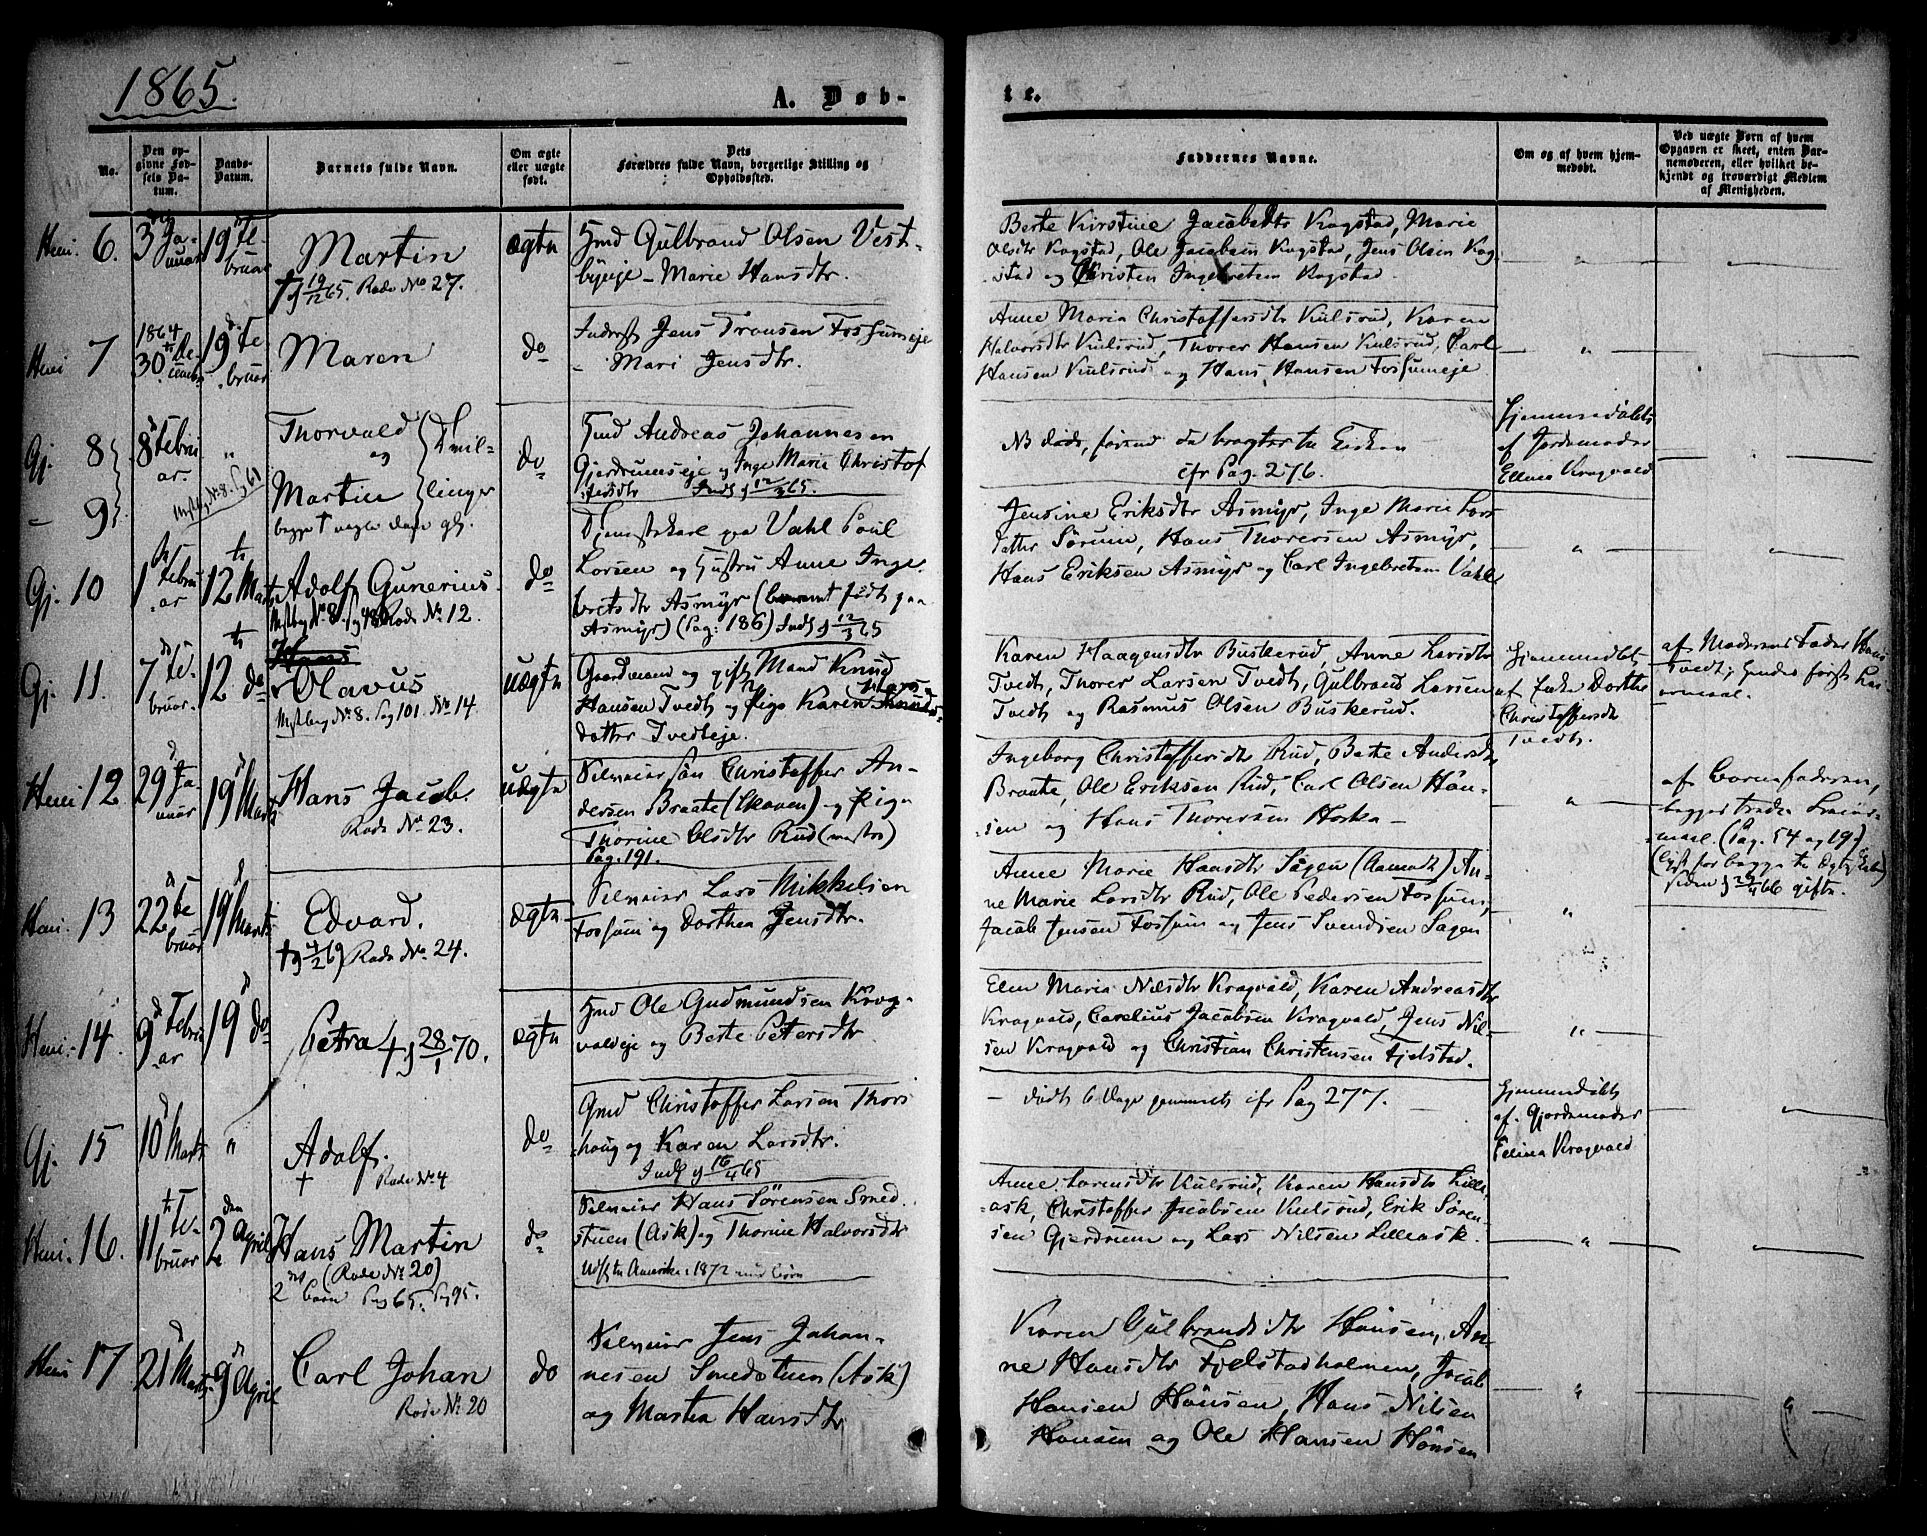 1865.
A. Døb-
te.
No.
Den op-
givne Fød-
sels Da-
tum.
Daabs-
Datum.
Barnets fulde Navn.
Om ægte
eller uægte
født.
Dets
Forældres fulde Navn, borgerlige Stilling og
Opholdssted.
Faddernes Navne.
Om og af hvem hjem-
medøbt.
Ved uægte Børn af hvem
Opgaven er skeet, enten Bar-
nemoderen, eller hvilket be-
kjendt og troværdigt Medlem
af Menigheden.
Heni. 6.
3 Ja-
nuar
19 Fe-
bruar
Martin
† 19/12 65. Rode No 27.
ægtn
Hmd Gulbrand Olsen Vest-
byeje - Marie Hansdtr.
Berte Kirstine Jacobsdtr Kogstad, Marie
Olsdtr Kogstad, Ole Jacobsen Kogstad, Jens Olsen Kog-
stad og Christen Ingebretsen Kogstad
Heni 7
1864
30 De-
cembr
19 Fe-
bruar
Maren
do
Inderst Jens Fransen Fossumeje
- Mari Jensdtr.
Anne Maria Christoffersdtr Kulsrud, Karen
Halvorsdtr Kulsrud, Thorer Hansen Kulsrud, Carl
Hansen Kulsrud og Hans Hansen Fossumeje
Gj. 8
- 9
8 Febru
ar.
Thorvald
og
Martin
Tvil-
linger
begge † nogle dage gl.
Mstbog No 8. Pg 61
do
Hmd Andreas Johannesen
Gjerdrumseje og Inge Marie Christof
fersdtr Indg 12/3 65.
NB døde, førend de bragtes til Kirken
cfr Pag. 276.
Hjemmedøbte
af Jordemoder
Ellina Kragvald
Gj. 10
1 Febru
ar
12 Marts
Adolf Gunerius.
Mstbog No 8. Pg 48 Rode No 12.
do
Tjenestekarl paa Vahl Poul
Larsen og Hustru Anne Inge-
bretsdtr Asmyr (barnet født paa
Asmyr) (Pag: 186) Indg 12/3 65
Jensine Eriksdtr Asmyr, Inge Marie Lars
datter Sørum, Hans Thoresen Asmyr,
Hans Eriksen Asmyr og Carl Ingebretsen Vahl
Gj. 11.
7 Fe-
bruar.
12 do
Hans
Olavus
Mstbog No 8. Pag 101. No 14
uægtn
Gaardmand og gift Mand Knud
Hansen Tvedt og Pige Karen Hans
datter Tvedteje.
Karen Haagensdtr Buskerud, Anne Larsdtr
Tvedt, Thorer Larsen Tvedt, Gulbrand Larsen
Tvedt og Rasmus Olsen Buskerud.
Hjemmedøbt
af Enke Dorthe
Christoffersdtr
Tvedt.
af Moderens Fader Hans
Tvedt; hendes første Lei-
ermaal.
Heni 12.
29 Ja-
nuar
19 Marts
Hans Jacob.
Rode No 23.
uægtn
Selveiersøn Christoffer An-
dersen Braate (Skoven) og Pige
Thorine Olsdtr Rud
Pag. 191.
Ingeborg Christoffersdtr Rud, Berte Andersdtr
Braate, Ole Eriksen Rud, Carl Olsen Høn-
sen og Hans Thorersen Harka -
af Barnefaderen,
begges tredie Leier-
maal (Pag. 54 og 191)
siden 26/4 66 gifte.
Heni. 13
22 Fe-
bruar
19 Marts
Edvard.
† 4/2 69 Rode No. 24.
ægtn
Selveier Lars Mikkelsen
Fossum og Dorthea Jensdtr.
Anne Marie Hansdtr Sagen (Aamodt) An-
ne Marie Larsdtr Rud, Ole Pedersen Fossum,
Jacob Jensen Fossum og Jens Svendsen Sagen
Heni. 14.
9 Febru
ar
19 do
Petra † 28/1 70.
ægtn
Hmd Ole Gudmundsen Krog-
valdeje og Berte Petersdtr
Elen Maria Nilsdtr Kragvald, Karen Andreasdtr
Kragvald, Carelius Jacobsen Kragvald, Jens Nil-
sen Kragvald og Christian Christensen Fjelstad.
Gj. 15
10 Marts
Adolf.
† Rode No 4
do
Gmd Christoffer Larsen Thors
houg og Karen Larsdtr.
Indg 16/4 65
- død 6 Dage gammel cfr Pag 277.
Hjemmedøbt
af Gjordemoder
Ellina Kragvald
Heni. 16.
11 Fe-
bruar
den
2 April
Hans Martin
(Rode No 20)
2 Barn Pag 65. Pg 95.
do
Selveier Hans Sørensen Smed-
stuen (Ask) og Thorine Halvorsdtr
Udfl til Amerika 1872 med børn
Anne Larensdtr Kulsrud, Karen Hansdtr Lille-
ask, Christoffer Jacobsen Kulsrud, Erik Søren-
sen Gjerdrum og Lars Nilsen Lilleask.
Heni 17
21 Marts
9 April
Carl Johan
Rode No 20
do
Selveier Jens Johan-
nesen Smedstuen (Ask)
og Martea Hansdtr
Karen Gulbrandsdtr Hønsen, An-
ne Hansdtr Fjelstadholmen, Jacob
Hansen Hønsen, Hans Nilsen
Hønsen og Ole Hansen Hønsen